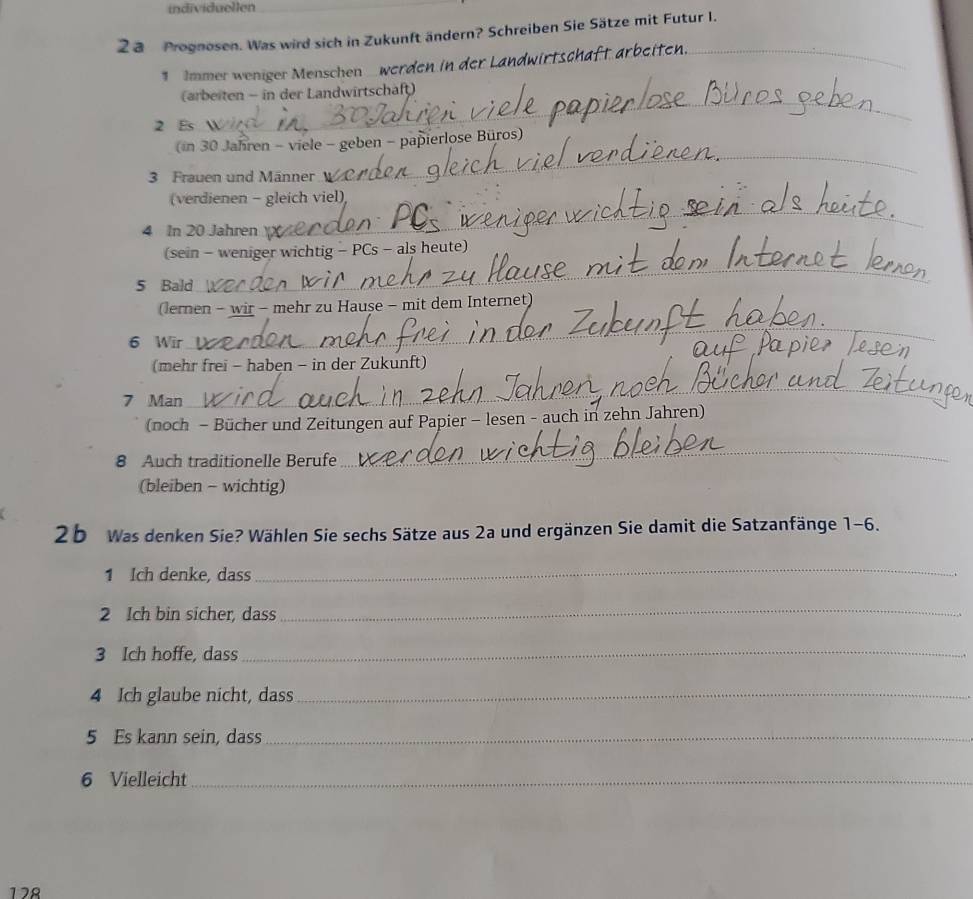 individuellen
2a Prognosen. Was wird sich in Zukunft ändern? Schreiben Sie Sätze mit Futur I.
1 Immer weniger Menschen werden in der Landwirtschaft arbeiten.
(arbeiten – in der Landwirtschaft)
2 Es wird in 30 Jahren viele papierlose Büros geben
(in 30 Jahren – viele – geben – papierlose Büros)
3 Frauen und Männer werden gleich viel verdienen.
(verdienen – gleich viel)
4 In 20 Jahren werden PCs weniger wichtig sein als heute.
(sein – weniger wichtig – PCs – als heute)
5 Bald werden wir mehr zu Hause mit dem Internet lernen
(lernen – wir – mehr zu Hause – mit dem Internet)
6 Wir werden mehr frei in der Zukunft haben.
(mehr frei – haben – in der Zukunft)
auf Papier lesen
7 Man wird auch in zehn Jahren noch Bücher und Zeitungen
(noch – Bücher und Zeitungen auf Papier – lesen - auch in zehn Jahren)
8 Auch traditionelle Berufe werden wichtig bleiben
(bleiben – wichtig)
2b Was denken Sie? Wählen Sie sechs Sätze aus 2a und ergänzen Sie damit die Satzanfänge 1–6.
1 Ich denke, dass
2 Ich bin sicher, dass
3 Ich hoffe, dass
4 Ich glaube nicht, dass
5 Es kann sein, dass
6 Vielleicht
128